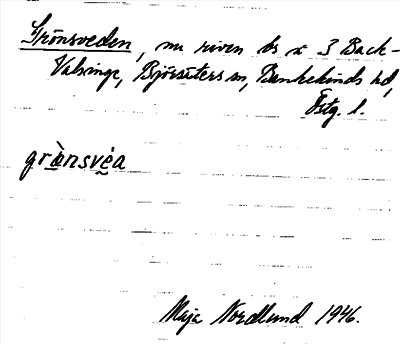 Grönsveden, nu riven bs i 3 Back-
Valsinge, Björsäters sn, Bankekinds hd,
Östg. l.
grö̀nsvéa
Maja Nordlund 1946.